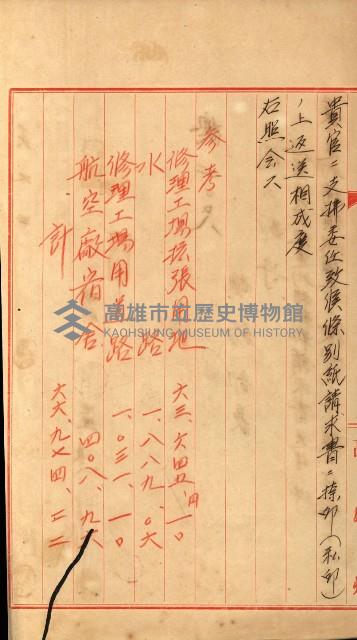 貴官ニ支拂委任致候條別紙請求書ニ捺印(私印)
ノ上返送相成度
右照会ス
参考
修理工場拡張用地 六三、六四五円一〇
水路 一、八八九、〇六
修理工場用道路 一、〇三一、一〇
航空廠宿舎 四〇八、九六
計 六六、九七四、二二
高雄市立歷史博物館
KAOHSIUNG MUSEUM OF HISTORY